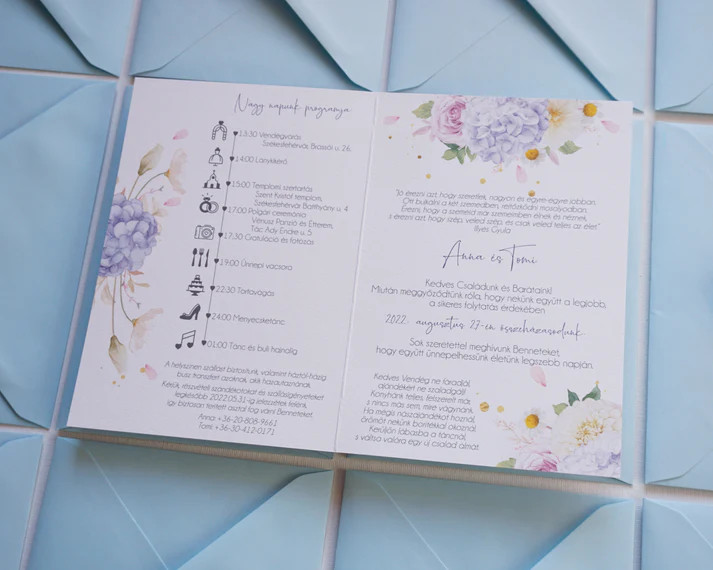 Nagy napunk programja
13:30 Vendégvárás
Székesfehérvár, Brassói u. 26.
14:00 Lánykikérő
15:00 Templomi szertartás
Szent Kristóf templom,
Székesfehérvár Batthyány u. 4
17:00 Polgári ceremónia
Vénusz Panzió és Étterem,
Tác Ady Endre u. 5
17:30 Gratuláció és fotózás
19:00 Ünnepi vacsora
22:30 Tortavágás
24:00 Menyecsketánc
01:00 Tánc és buli hajnalig
A helyszínen szállást biztosítunk, valamint háztól-házig
busz transzfert azoknak, akik hazautaznának.
Kérjük, részvételi szándékotokat és szállásigényeteket
legkésőbb 2022.05.31-ig jelezzétek felénk,
így biztosan terített asztal fog várni Benneteket.
Anna: +36-20-808-9661
Tomi: +36-30-412-0171
"Jó érezni azt, hogy szeretlek, nagyon és egyre-egyre jobban,
Ott bujkálni a két szemedben, rejtőzködni mosolyodban.
Érezni, hogy a szemeid már szemeimben élnek és néznek,
s érezni azt, hogy szép, veled szép, és csak veled teljes az élet"
Illyés Gyula
Anna és Tomi
Kedves Családunk és Barátaink!
Miután meggyőződtünk róla, hogy nekünk együtt a legjobb,
a sikeres folytatás érdekében
2022. augusztus 27-én összeházasodunk.
Sok szeretettel meghívunk Benneteket,
hogy együtt ünnepelhessünk életünk legszebb napján.
Kedves Vendég ne fáradjál,
ajándékért ne szaladgálj!
Konyhánk telies, felszerelt már,
s nincs más sem, mire vágynánk.
Ha mégis nászajándékot hoznál,
örömöt nekünk borítékkal okoznál.
Kerüljön lábasba a fáncnál,
s váltsa valóra egy új család álmát.